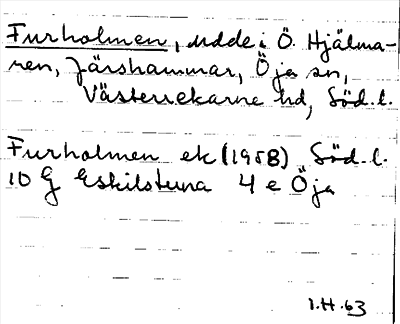 Furholmen, udde i Ö. Hjälma-
ren, Järshammar, Öja sn,
Västerrekarne hd, Söd. l.
Furholmen ek (1958) Söd. l.
10 G Eskilstuna 4 e Öja
1.H.63